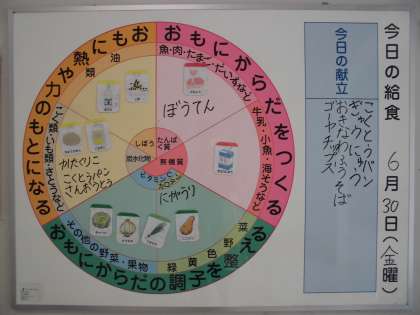 今日の給食
6月30日(金曜)
今日の献立
こくとうパン
ぎゅうにゅう
おきなわふうそば
ゴーヤチップス
おもにからだをつくる
魚・肉・たまご・だいずなど
牛乳・小魚・海そうなど
おもに熱や力のもとになる
油類
こく類・いも類・さとうなど
おもにからだの調子を整える
緑黄色野菜
その他の野菜・果物
しぼう
たんぱく質
炭水化物
無機質
ビタミンC
ぼうてん
かたりこ
こくとうパン
さんおうとう
にがうり